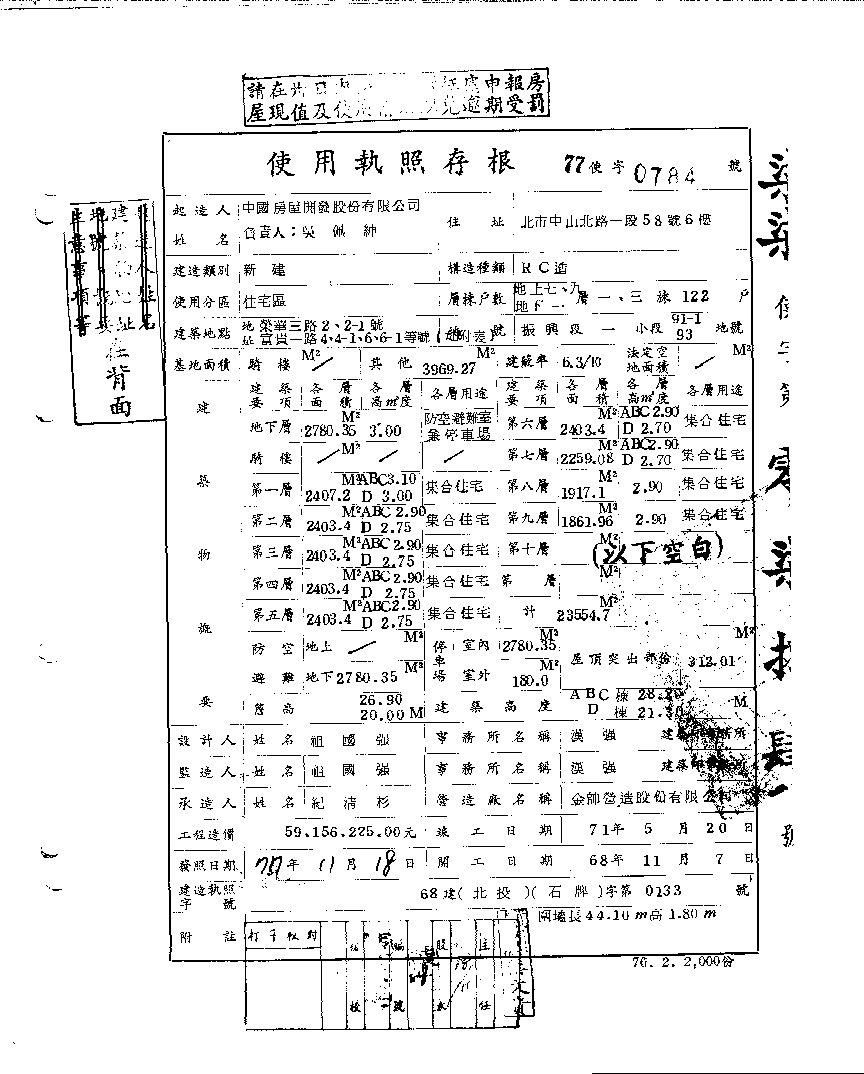 請在 申報房
屋現值及使 逾期受罰
使用執照存根 77使字0784號
起造人姓名 中國房屋開發股份有限公司 負責人:吳 住址 北市中山北路一段58號6樓
建造類別 新建 構造種類 RC造
使用分區 住宅區 層棟戶數 地上七、九 地下一 層 一、三 棟 122 戶
建築地點 地址 榮華三路2、2-1號 富貴一路4、4-1、6、6-1等號 地號 振興段一小段 91-1 93 地號
基地面積 騎樓 M² / 其他 3969.27 M² 建蔽率 6.3/10 法定空地面積 / M²
建築要項 各層面積 各層高度 各層用途 建築要項 各層面積 各層高度 各層用途
地下層 2780.35 M² 3.00 防空避難室兼停車場 第六層 2403.4 M² ABC 2.90 D 2.70 集合住宅
騎樓 / M² / / 第七層 2259.08 M² ABC 2.90 D 2.70 集合住宅
第一層 2407.2 M² ABC 3.10 D 3.00 集合住宅 第八層 1917.1 M² 2.90 集合住宅
第二層 2403.4 M² ABC 2.90 D 2.75 集合住宅 第九層 1861.96 M² 2.90 集合住宅
第三層 2403.4 M² ABC 2.90 D 2.75 集合住宅 第十層 M² (以下空白)
第四層 2403.4 M² ABC 2.90 D 2.75 集合住宅 第 層 M²
第五層 2403.4 M² ABC 2.90 D 2.75 集合住宅 計 23554.7 M²
建築物概要
防空 地上 / M² 停車場 室內 2780.35 M² 屋頂突出部份 312.01 M²
避難 地下 2780.35 M² 室外 180.0 M²
簷高 26.90 20.00 M 建築高度 ABC棟 28.20 D棟 21.30 M
設計人 姓名 祖國強 事務所名稱 漢強 建築師事務所
監造人 姓名 祖國強 事務所名稱 漢強 建築師事務所
承造人 姓名 紀清杉 營造廠名稱 金帥營造股份有限公司
工程造價 59,156,225.00元 竣工日期 71年5月20日
發照日期 77年11月18日 開工日期 68年11月7日
建造執照字號 68建(北投)(石牌)字第0133號
附註 圍墻長44.10m高1.80m
打字校對
股長
主任
70. 2. 2,000份
在背面
使字第零柒捌肆號